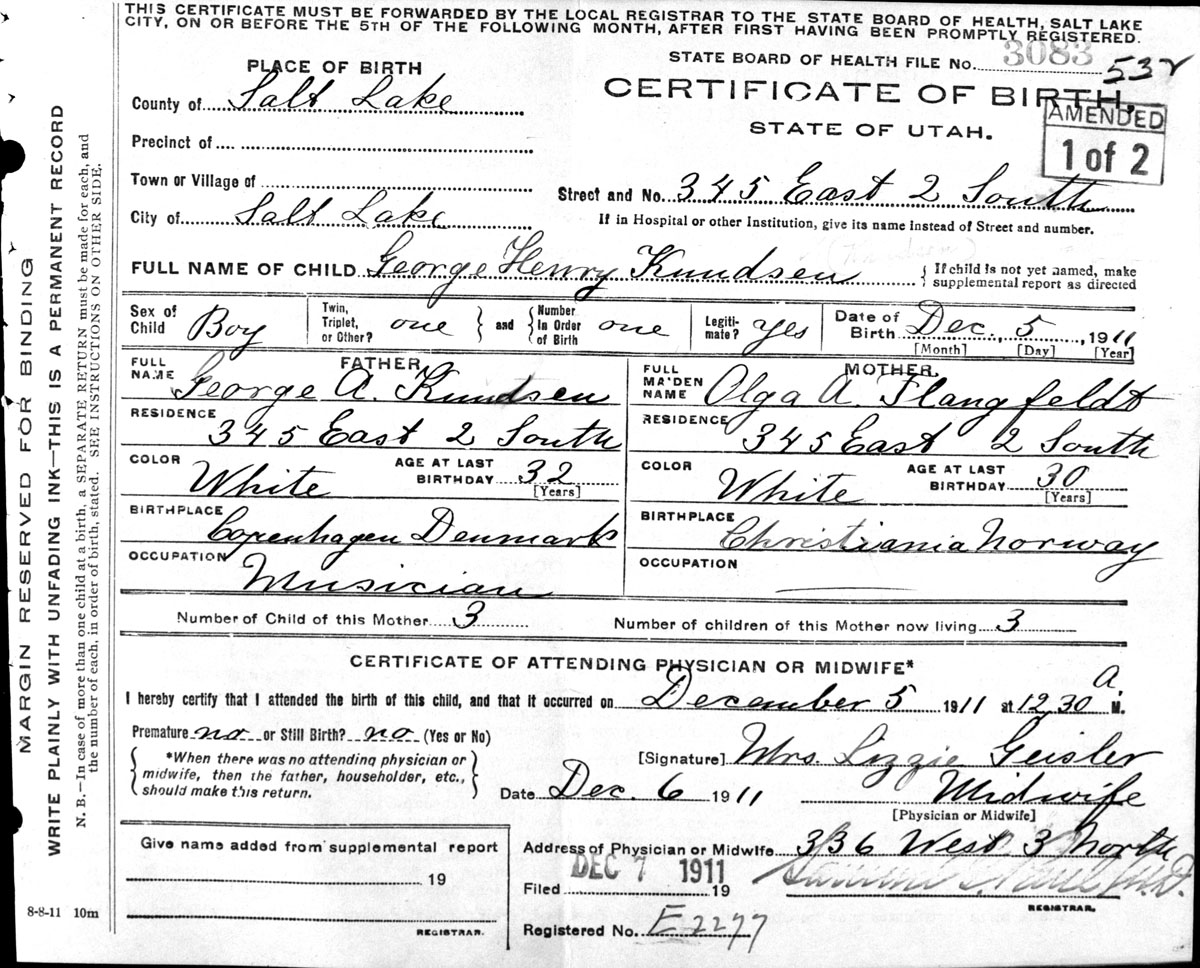 THIS CERTIFICATE MUST BE FORWARDED BY THE LOCAL REGISTRAR TO THE STATE BOARD OF HEALTH, SALT LAKE
CITY, ON OR BEFORE THE 5TH OF THE FOLLOWING MONTH, AFTER FIRST HAVING BEEN PROMPTLY REGISTERED.
STATE BOARD OF HEALTH FILE No. 3083 532
PLACE OF BIRTH
CERTIFICATE OF BIRTH,
County of Salt Lake
STATE OF UTAH.
AMENDED
1 of 2
Precinct of
Town or Village of
Street and No. 345 East 2 South
City of Salt Lake
If in Hospital or other Institution, give its name instead of Street and number.
FULL NAME OF CHILD George Henry Knudsen
If child is not yet named, make
supplemental report as directed
Sex of Child Boy
Twin, Triplet, or Other? one and Number In Order of Birth one
Legiti-mate? Yes
Date of Birth Dec. 5, 1911
[Month] [Day] [Year]
FATHER
MOTHER.
FULL NAME George A. Knudsen
FULL MAIDEN NAME Olga A. Flangfeldt
RESIDENCE 345 East 2 South
RESIDENCE 345 East 2 South
COLOR White AGE AT LAST BIRTHDAY 32 [Years]
COLOR White AGE AT LAST BIRTHDAY 30 [Years]
BIRTHPLACE Copenhagen Denmark
BIRTHPLACE Christiania Norway
OCCUPATION Musician
OCCUPATION
Number of Child of this Mother 3
Number of children of this Mother now living 3
CERTIFICATE OF ATTENDING PHYSICIAN OR MIDWIFE*
I hereby certify that I attended the birth of this child, and that it occurred on December 5 1911 at 12,30 A. M.
Premature no or Still Birth? no (Yes or No)
*When there was no attending physician or
midwife, then the father, householder, etc.,
should make this return.
[Signature] Mrs. Lizzie Geisler
Date Dec. 6 1911 Midwife
[Physician or Midwife]
Give name added from supplemental report
19
REGISTRAR.
Address of Physician or Midwife 336 West 3 North
Filed DEC 7 1911 19
M.D.
REGISTRAR.
Registered No. E2277
8-8-11 10m
MARGIN RESERVED FOR BINDING
WRITE PLAINLY WITH UNFADING INK—THIS IS A PERMANENT RECORD
N. B.—In case of more than one child at a birth, a SEPARATE RETURN must be made for each, and
the number of each, in order of birth, stated. SEE INSTRUCTIONS ON OTHER SIDE.